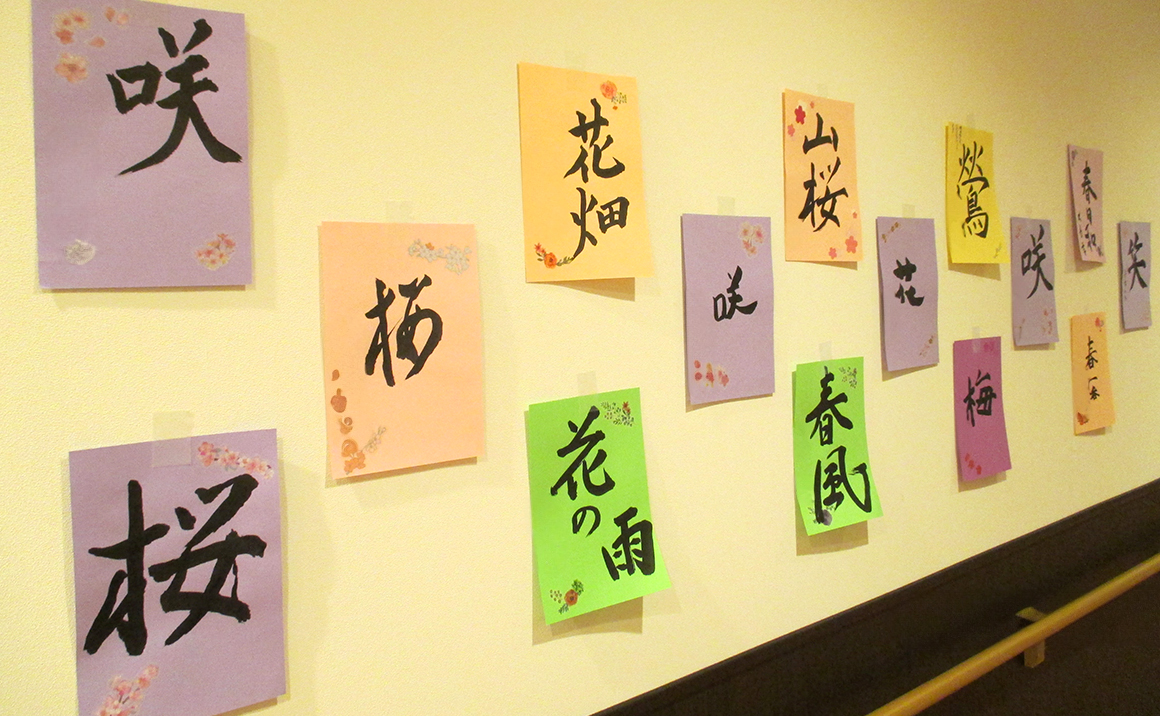 咲
桜
桜
花畑
花の雨
咲
山桜
春風
花
鶯
梅
咲
春日和
笑
春